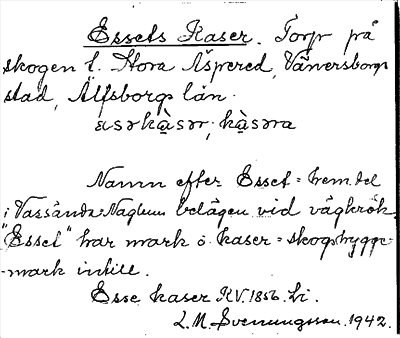 Essets Kaser. Torp på
skogen t. Stora Äspered, Vänersborgs
stad, Älfsborgs län.
ɛsəkàsər, kàsəra
Namn efter Esset = hem.del
i Vassända Naglum belägen vid vägkrök.
"Esset" har mark o. kaser = skogsbygge-
-mark intill.
Esse kaser K.V. 1856. Li.
L.M. Svenungsson. 1942.